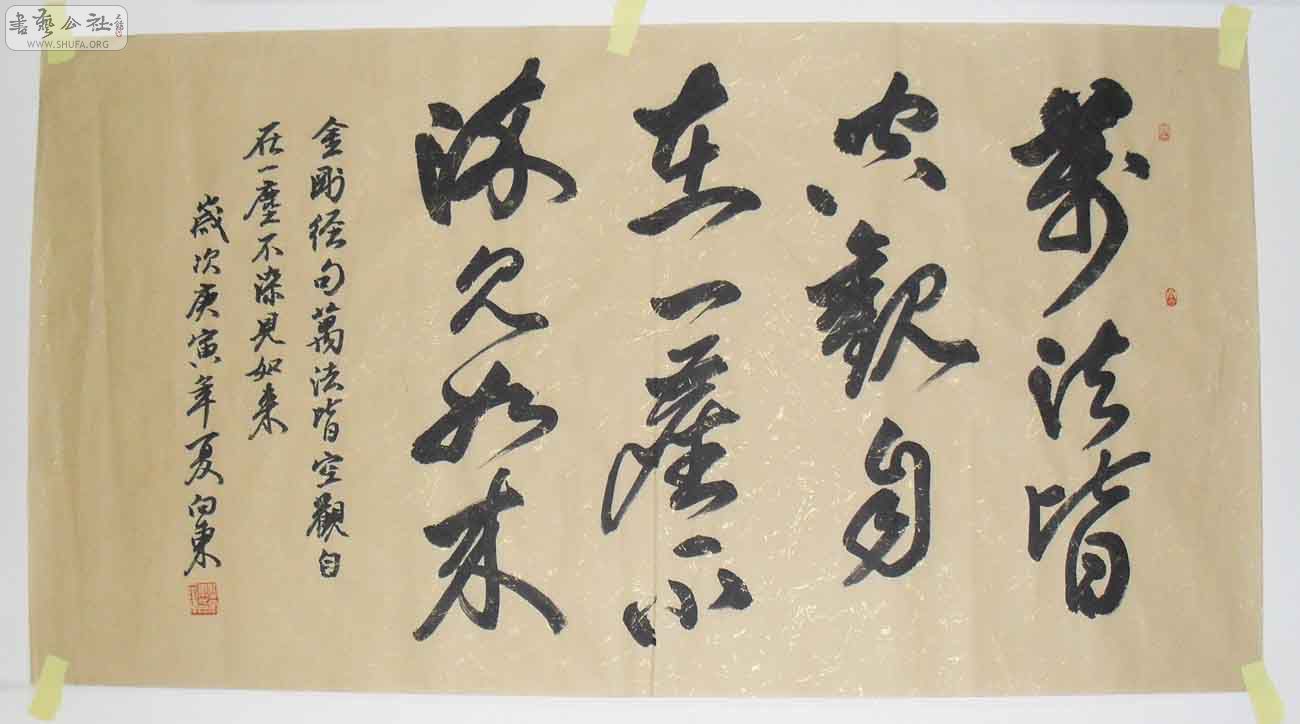 萬法皆
空觀自
在一塵不
染見如来
金剛经句萬法皆空觀自
在一塵不染見如来
歲次庚寅年夏向東
書藝公社
WWW.SHUFA.ORG